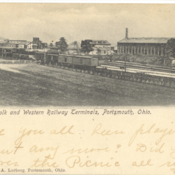 olk and Western Railway Terminals, Portsmouth, Ohio.
you all: been playe
any more? Did
over the Picnic all r
A. Lorberg, Portsmouth, Ohio.